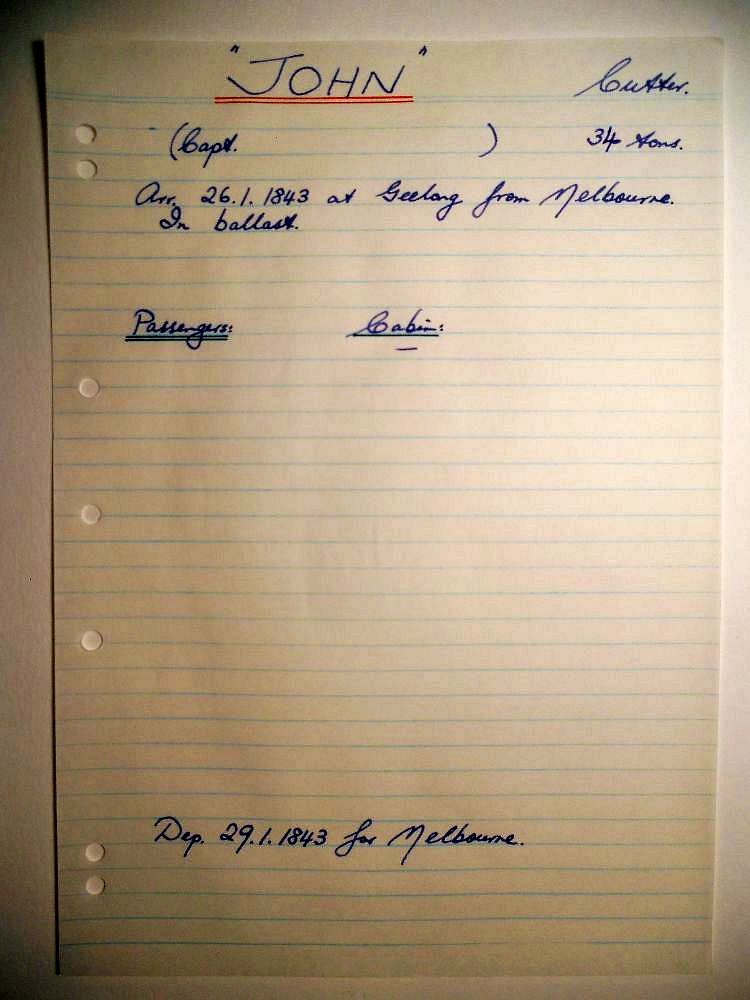 "JOHN" Cutter.
(Capt. ) 34 tons.
Arr. 26.1.1843 at Geelong from Melbourne.
In ballast.
Passengers: Cabin:
—
Dep. 29.1.1843 for Melbourne.